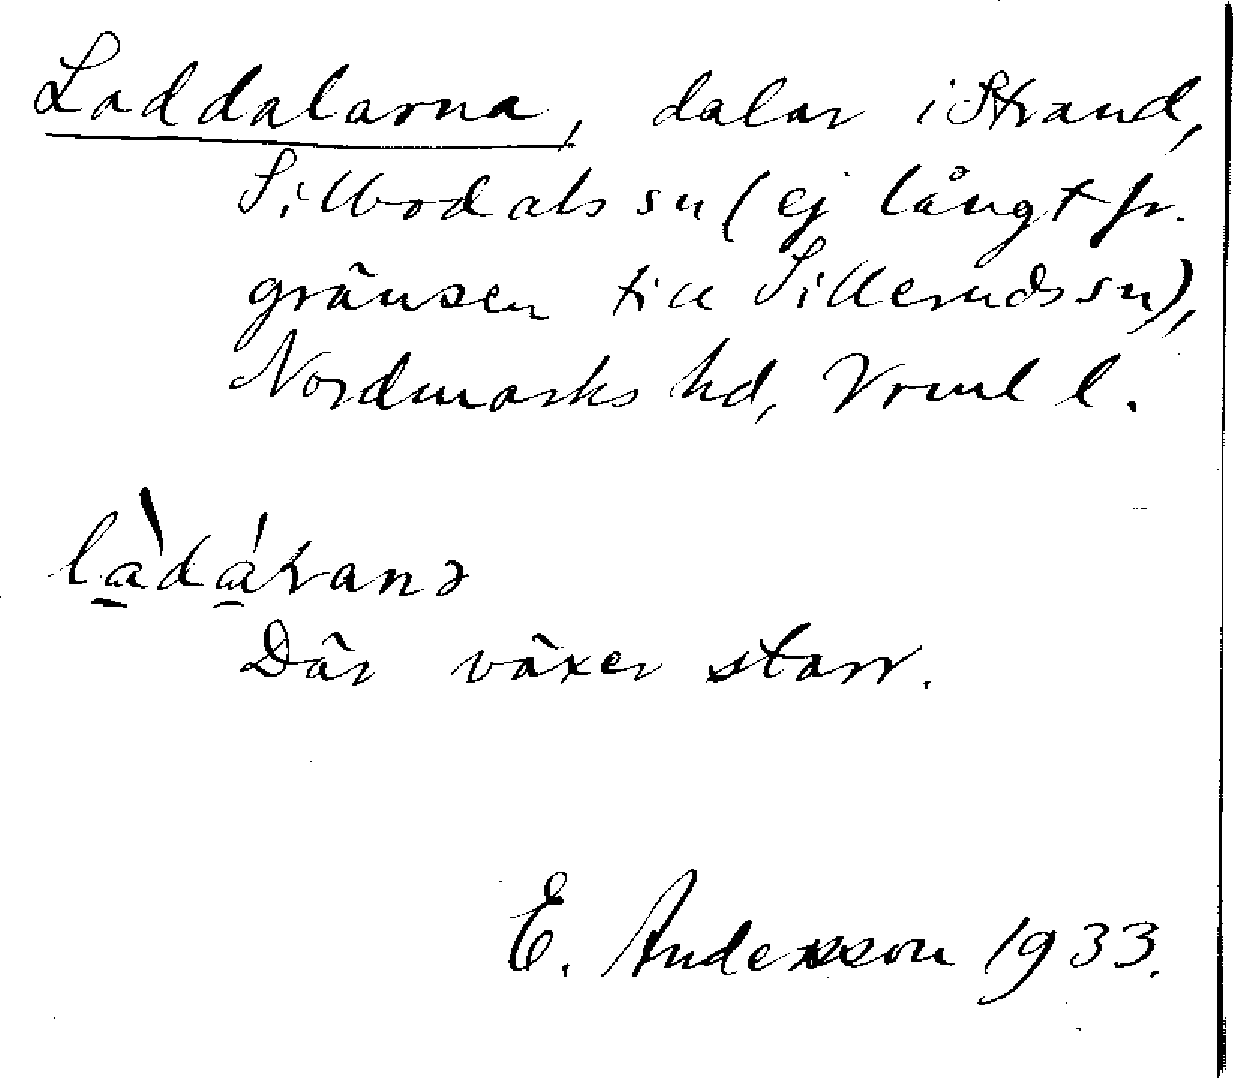 Laddalarna, dalar i Strand,
Silbodals sn (ej långt fr.
gränsen till Sillerudssn),
Nordmarks hd, Vrml l.
Där växer starr.
E. Andersson 1933.